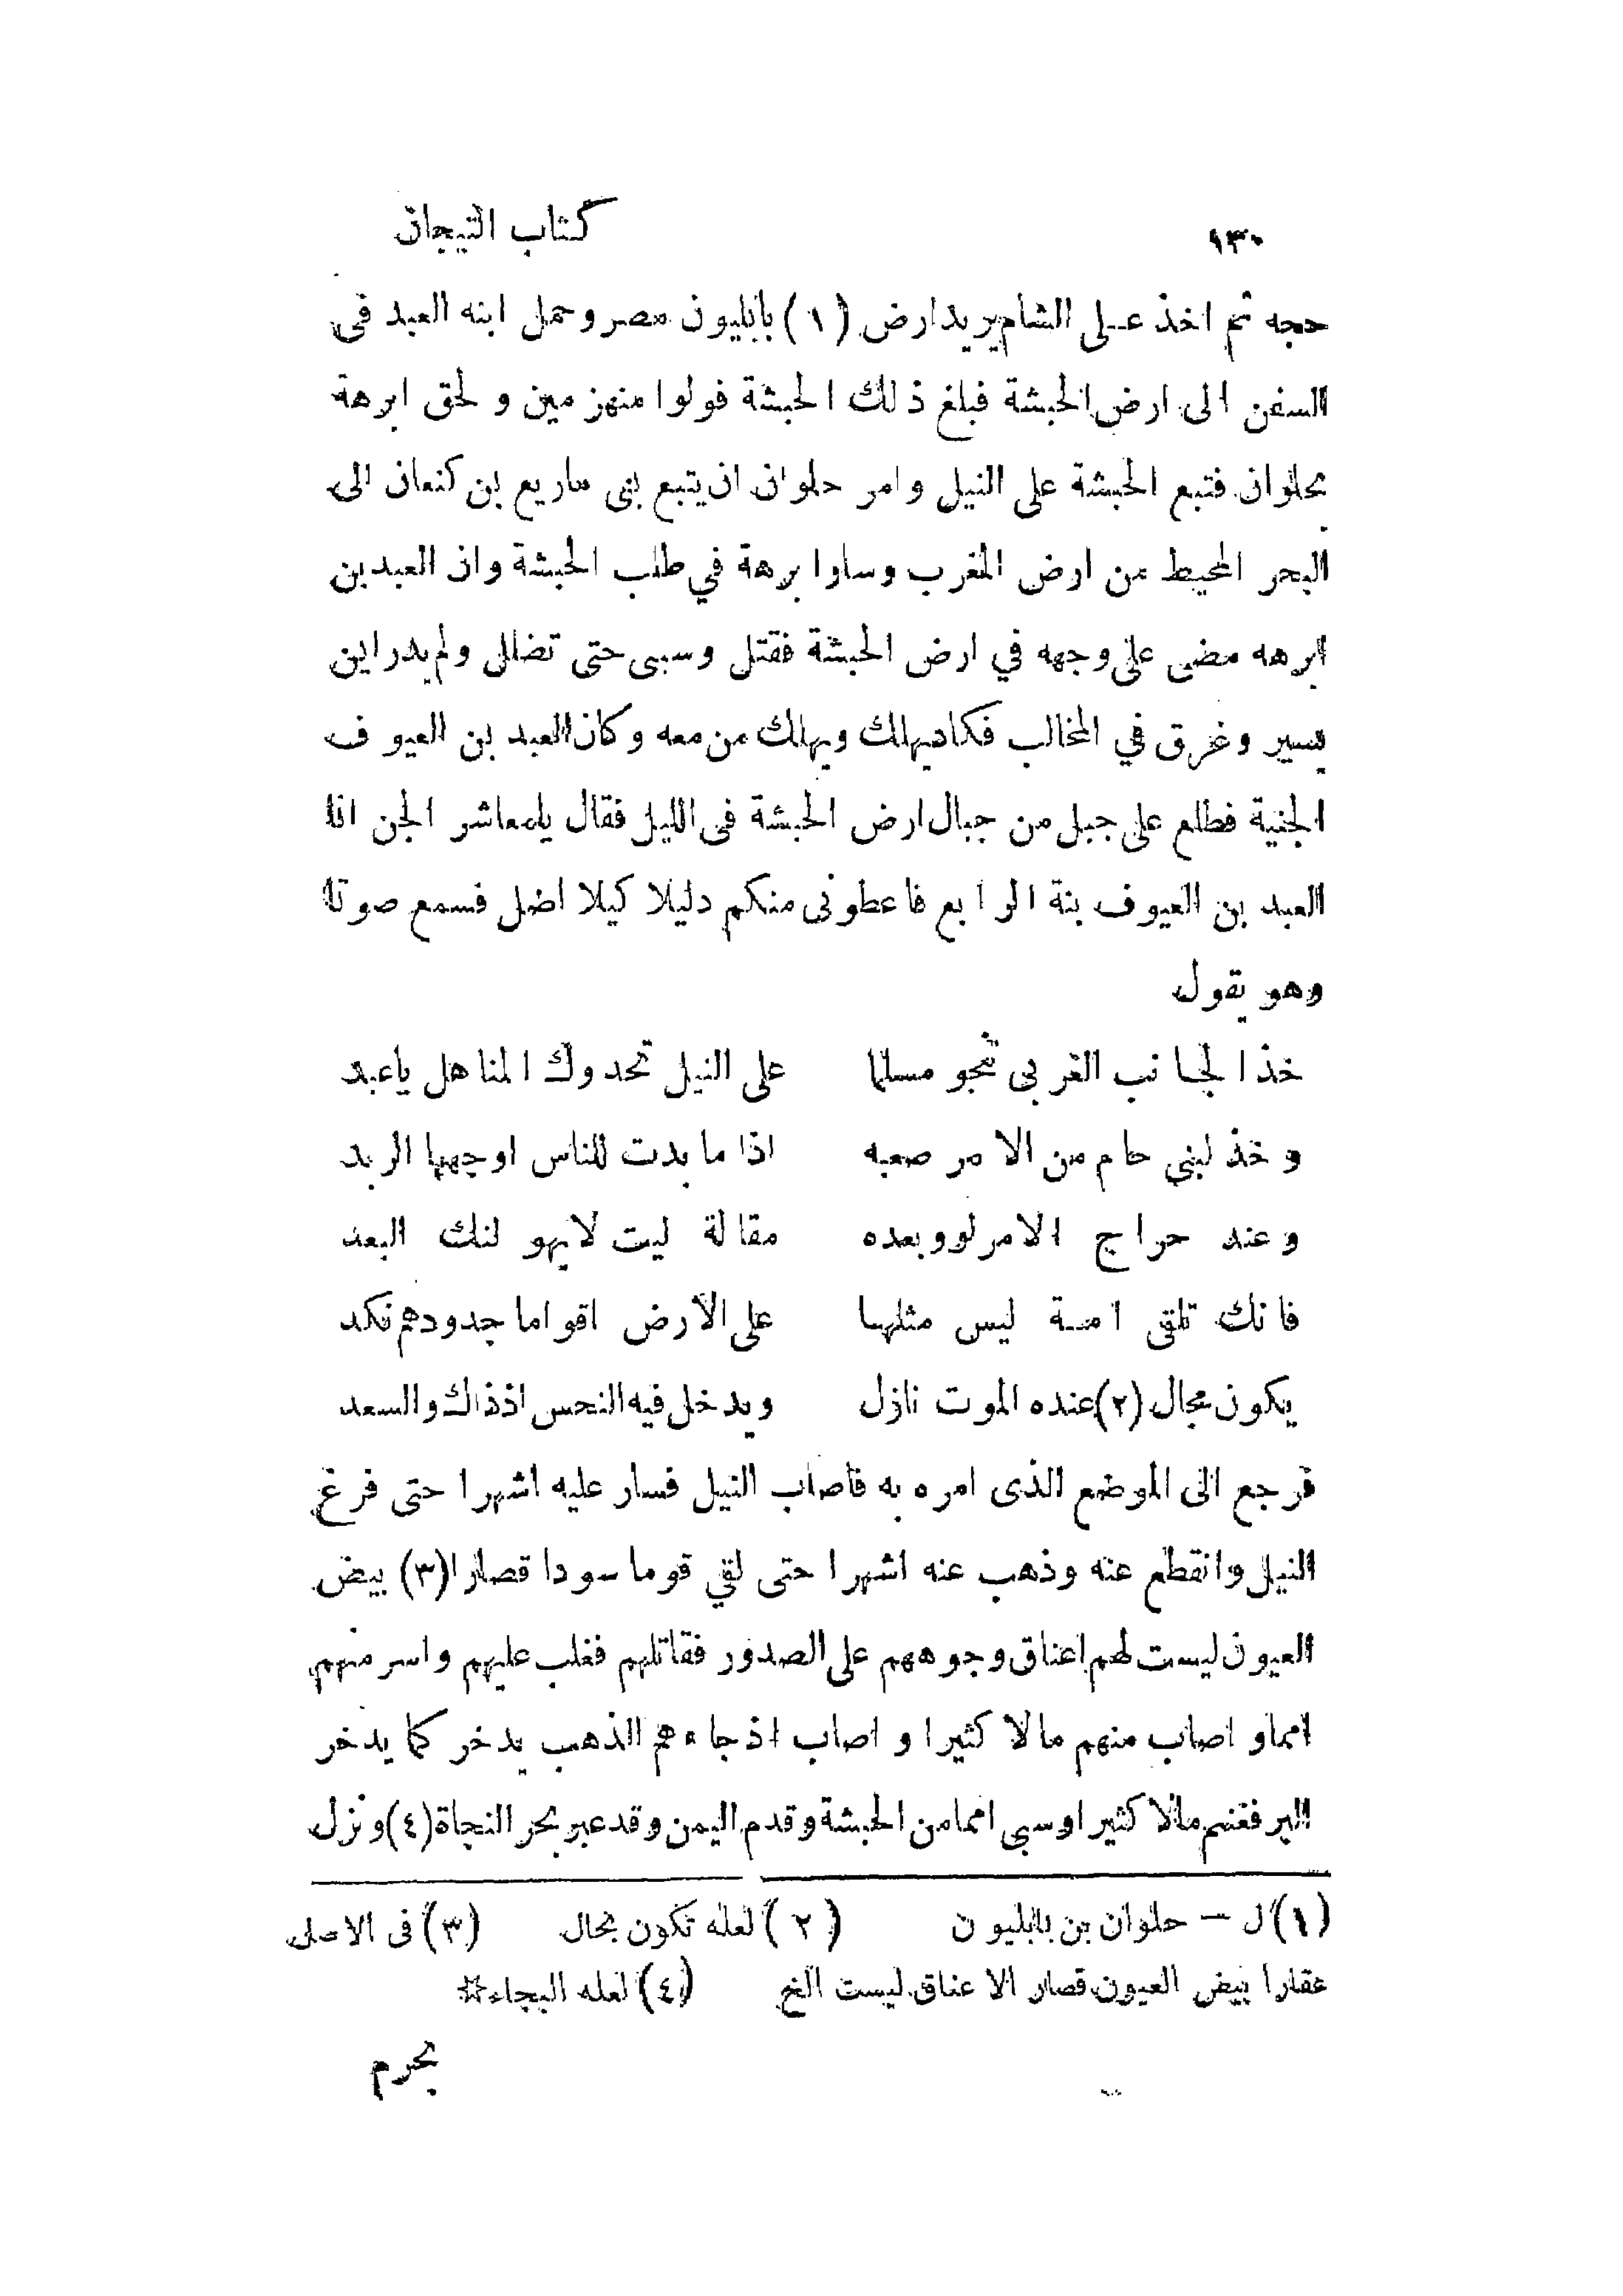 ١٣٠ كتاب التيجان
حجه ثم اخذ على الشام يريد ارض (١) بابليون مصر وحمل ابنه العبد في
السفن الى ارض الحبشة فبلغ ذلك الحبشة فولوا منهزمين ولحق ابرهة
بحلوان فتبع الحبشة على النيل وامر حلوان ان يتبع بني ماريع بن كنعان الى
البحر المحيط من ارض المغرب وسار ابرهة في طلب الحبشة وان العبد بن
ابرهه مضى على وجهه في ارض الحبشة فقتل وسبى حتى تضال ولم يدر اين
يسير وغرق في المخالب فكاد يهلك ويهلك من معه وكان العبد بن العيوف
الجنية فطلع على جبل من جبال ارض الحبشة في الليل فقال يا معاشر الجن انا
العبد بن العيوف بنة الرابع فاعطوني منكم دليلا كيلا اضل فسمع صوتا
وهو يقول
خذ الجانب الغربي تنجو مسلما على النيل تحدوك المناهل يا عبد
وخذ لبني حام من الامر صعبه اذا ما بدت للناس اوجهها الربد
وعند حراج الامر لو وبعده مقالة ليت لا يهو لنك البعد
فانك تلقى امة ليس مثلها على الارض اقواما جدودهم نكد
يكون مجال (٢) عنده الموت نازل ويدخل فيه النحس اذ ذاك والسعد
فرجع الى الموضع الذى امره به فاصاب النيل فسار عليه اشهرا حتى فرغ
النيل وانقطع عنه وذهب عنه اشهرا حتى لقي قوما سودا قصارا (٣) بيض
العيون ليست لهم اعناق وجوههم على الصدور فقاتلهم فغلب عليهم واسر منهم
امما و اصاب منهم مالا كثيرا و اصاب اذ جاءهم الذهب يدخر كما يدخر
البر فغنم مالا كثيرا وسبى امما من الحبشة وقدم اليمن وقد عبر بحر النجاة (٤) ونزل
(١) ل – حلوان بن بابليون (٢) لعله تكون بحال (٣) في الاصل
عقارا بيض العيون قصار الاعناق ليست الخ (٤) لعله البجاء☆
بحرم